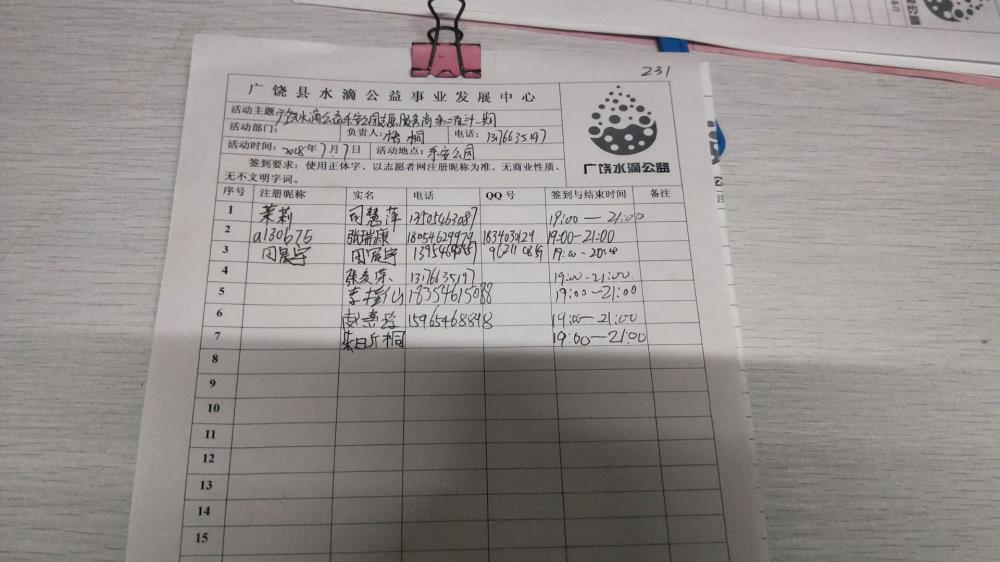 231
广饶县水滴公益事业发展中心
活动主题:广饶水滴公益乐安公园志愿服务岗第二百三十一期
活动部门: 负责人:梧桐 电话:
活动时间:2018年7月7日 活动地点:乐安公园
签到要求:使用正体字、以志愿者网注册昵称为准、无商业性质、
无不文明字词。
广饶水滴公益
序号 注册昵称 实名 电话 QQ 号 签到与结束时间 备注
1 茉莉 司慧萍 13505463087 19:00—21:00
2 a130675 张瑞康 18054629979 183403029 19:00-21:00
3 田宸宇 田宸宇
4 19:00-21:00
5 18354615088 19:00—21:00
6 15965468898 19:00—21:00
7 19:00—21:00
8
9
10
11
12
13
14
15